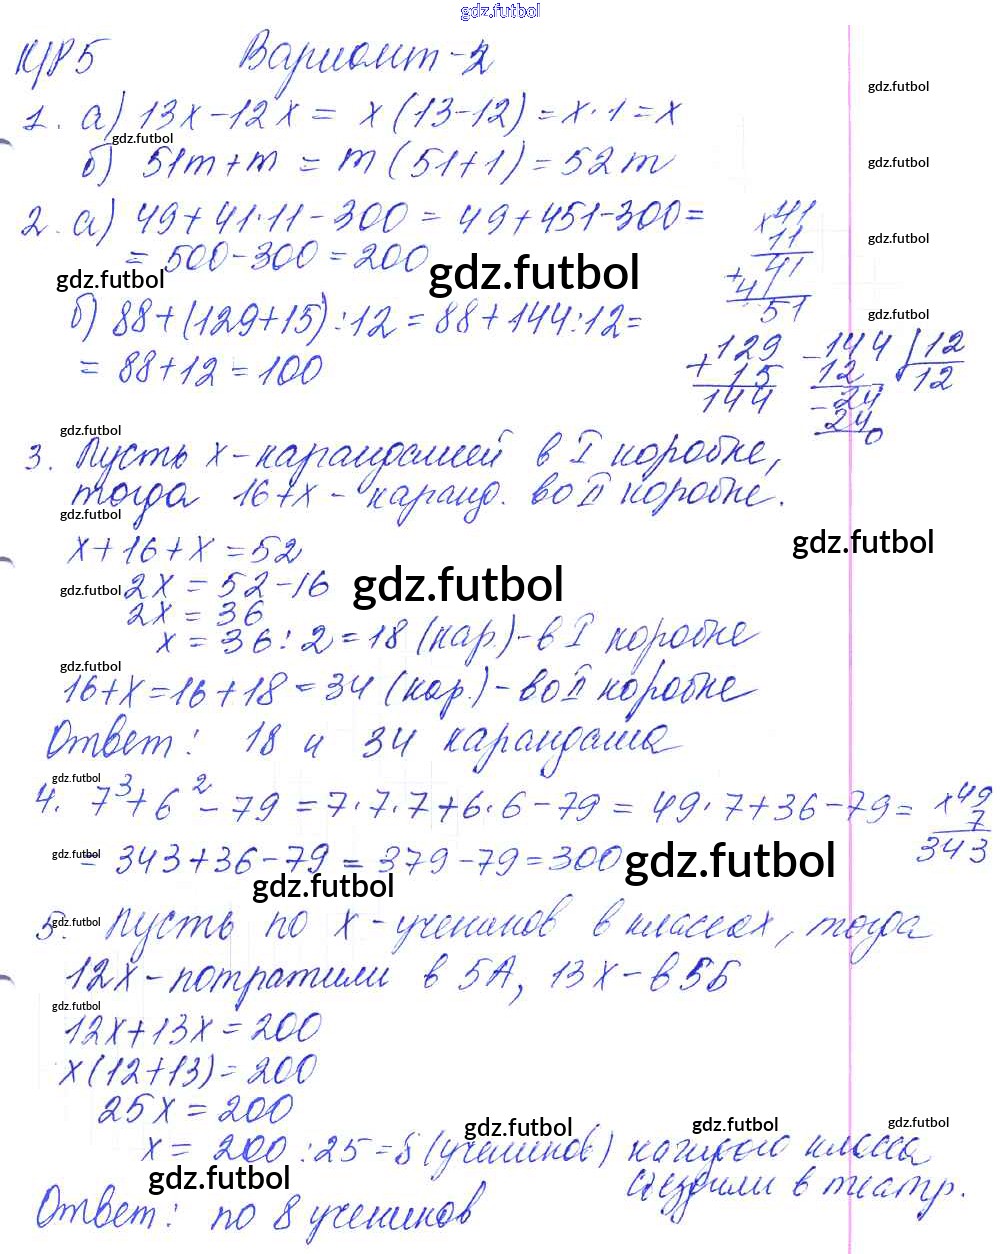 gdz.futbol
К/Р 5 Вариант-2
gdz.futbol
1. а) 13x-12x = x(13-12) = x·1=x
gdz.futbol
б) 51m+m = m(51+1)=52m
gdz.futbol
2. а) 49+41·11-300 = 49+451-300=
= 500-300=200
×41
11
+41
41
451
gdz.futbol
gdz.futbol
gdz.futbol
gdz.futbol
б) 88+(129+15):12=88+144:12=
= 88+12=100
+129
15
144
-144 12
12 12
-24
24
0
gdz.futbol
3. Пусть x-карандашей в I коробке,
тогда 16+x - каранд. во II коробке.
gdz.futbol
gdz.futbol
x+16+x=52
2x = 52-16
gdz.futbol
gdz.futbol
2x = 36
x = 36:2=18 (кар.)-в I коробке
gdz.futbol
16+x=16+18=34 (кар.)-во II коробке
Ответ: 18 и 34 карандаша
gdz.futbol
4. 7³+6²-79=7·7·7+6·6-79=49·7+36-79=
= 343+36-79=379-79=300
×49
7
343
gdz.futbol
gdz.futbol
gdz.futbol
gdz.futbol
5. Пусть по x-учеников в классах, тогда
12x-потратили в 5А, 13x-в 5Б
gdz.futbol
12x+13x=200
x(12+13)=200
25x=200
gdz.futbol
gdz.futbol
gdz.futbol
x = 200:25=8 (учеников) каждого класса
ездили в театр.
gdz.futbol
Ответ: по 8 учеников